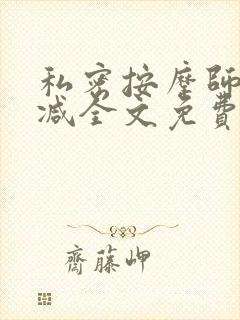 私密按摩師
减全文免費
齋藤岬